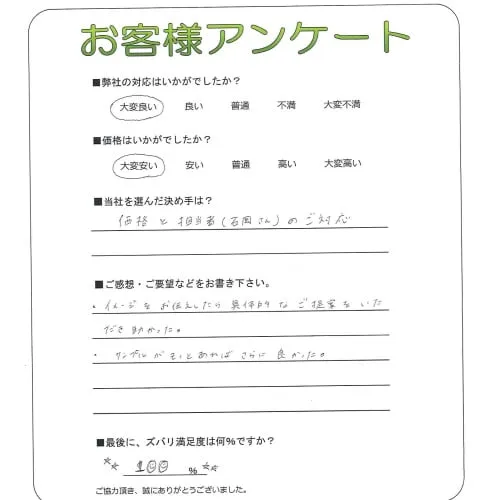 お客様アンケート
■弊社の対応はいかがでしたか?
大変良い 良い 普通 不満 大変不満
■価格はいかがでしたか?
大変安い 安い 普通 高い 大変高い
■当社を選んだ決め手は?
価格と担当者(石岡さん)のご対応
■ご感想・ご要望などをお書き下さい。
・イメージをお伝えしたら具体的なご提案をいた
だき助かった。
・サンプルがもっとあればさらに良かった。
■最後に、ズバリ満足度は何%ですか?
100 %
ご協力頂き、誠にありがとうございました。